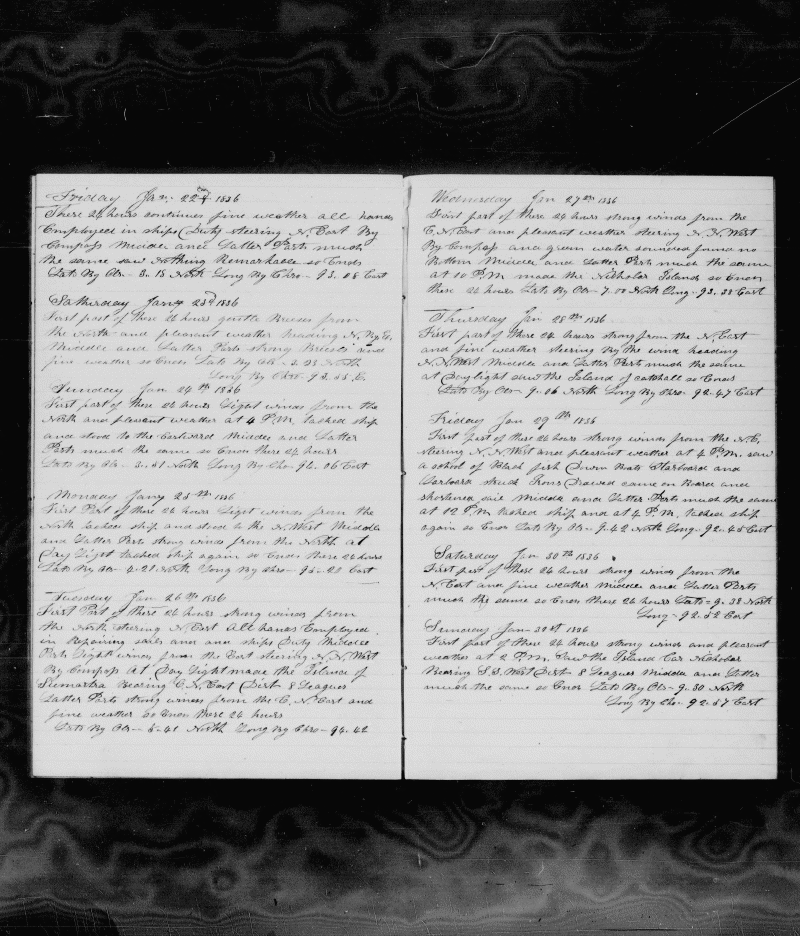 Friday Jan. 22nd 1836
These 24 hours continues fine weather all hands
Employed in ships Duty steering N. East By
Compass Middle and Latter Parts much
the same saw Nothing Remarkable so Ends
Lats By Obs - 3. 15 North Long By Chro - 93. 08 East
Satturday Jany 23d 1836
First part of these 24 hours gentle Breeses from
the North and pleasant weather heading N. By E.
Middle and Latter Parts strong Breeses and
fine weather so Ends Lats By Obs - 23 North
Long By Chro - 93. 55 E.
Sunday Jan 24th 1836
First part of these 24 hours Light winds from the
North and pleasant weather at 4 P.M. tacked ship
and stood to the Eastward Middle and Latter
Parts much the same so Ends these 24 hours
Lats By Obs - 3. 51 North Long By Chro 94. 06 East
Monday Jany 25th 1836
First Part of these 24 hours Light winds from the
North tacked ship and stood to the N. West Middle
and Latter Parts strong winds from the North at
Day Light tacked ship again so Ends these 24 hours
Lats By Obs - 4. 21 North Long By Chro - 95 - 22 East
Tuesday Jan 26th 1836
First Part of these 24 hours strong winds from
the North steering N. East All hands Employed
in Repairing sails and and ships Duty Middle
Parts Light winds from the East steering N. N. West
By Compass At Day Light made the Island of
Sumartra Bearing E. N. East Dist 8 Leagues
Latter Parts strong winds from the E. N. East and
fine weather so Ends these 24 hours
Lats By Obs - 5 - 41 North Long By Chro - 94. 42
Wednesday Jan 27th 1836
First part of these 24 hours strong winds from the
E. N. East and pleasant weather steering N. N. West
By Compass and green water sounded found no
Bottom Middle and Latter Parts much the same
at 10 P.M. made the Nicholar Islands so Ends
these 24 hours Lats By Obs - 7. 00 North Long - 93. 38 East
Thursday Jan 28th 1836
First part of these 24 hours strong from the N. East
and fine weather steering By the wind heading
N. N. West Middle and Latter Parts much the same
at Daylight saw the Island of catchall so Ends
Lats By Obs - 9. 06 North Long By Chro - 92. 47 East
Friday Jan 29th 1836
First part of these 24 hours strong winds from the N. E.
steering N. N. West and pleasant weather at 4 P.M. saw
a school of Black fish Down Boats Starboard and
Larboard struck Irons Drawed came on Board and
shortened sail Middle and Latter Parts much the same
at 12 P.M. tacked ship and at 4 P.M. tacked ship
again so Ends Lats By Obs - 9. 42 North Long - 92. 45 East
Saturday Jan 30th 1836
First part of these 24 hours strong winds from the
N. East and fine weather Middle and Latter Parts
much the same so Ends these 24 hours Lats - 9. 38 North
Long - 92. 52 East
Sunday Jan 31st 1836
First part of these 24 hours strong winds and pleasant
weather at 2 P.M. Saw the Island Car Nicholar
Bearing S. S. West Dist - 8 Leagues Middle and Latter
much the same so Ends Lats By Obs - 9. 30 North
Long By Chro - 92. 57 East